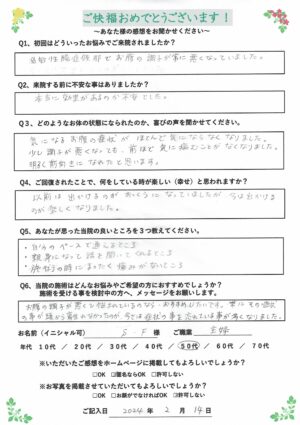 ご快福おめでとうございます！
～あなた様の感想をお聞かせください～
Q1、初回はどういったお悩みでご来院されましたか？
過敏性腸症候群でお腹の調子が常に悪くなっていました。
Q2、来院する前に不安な事はありましたか？
本当に効果があるのか不安でした。
Q3、どのようなお体の状態になられたのか、喜びの声を聞かせてください。
気になるお腹の症状がほとんど気にならなくなりました。
少し調子が悪くなっても、前ほど気に病むことがなくなりました。
明るく前向きになれたと思います。
Q4、ご回復されたことで、何をしている時が楽しい（幸せ）と思われますか？
以前は出かけるのがおっくうになっていましたが 今は出かける
のが楽しくなりました。
Q5、あなたが思った当院の良いところを３つ教えてください。
・自分のペースで通えるところ
・親身になって話を聞いてくれるところ
・施術の時にまったく痛みがないところ
Q6、当院の施術はどんなお悩みやご希望の方におすすめでしょうか？
施術を受ける事を検討中の方へ、メッセージをお願いします。
お腹の調子が悪くて悩まれているのなら
お名前（イニシャル可） S・F 様 ご職業 主婦
年代 10代 ／ 20代 ／ 30代 ／ 40代 ／ 50代 ／ 60代 ／ 70代
※いただいたご感想をホームページに掲載してもよろしいでしょうか？
□OK □匿名ならOK □許可しない
※お写真を掲載させていただいてもよろしいでしょうか？
□OK □お顔がでなければOK □許可しない
ご記入日 2024年 2月 14日